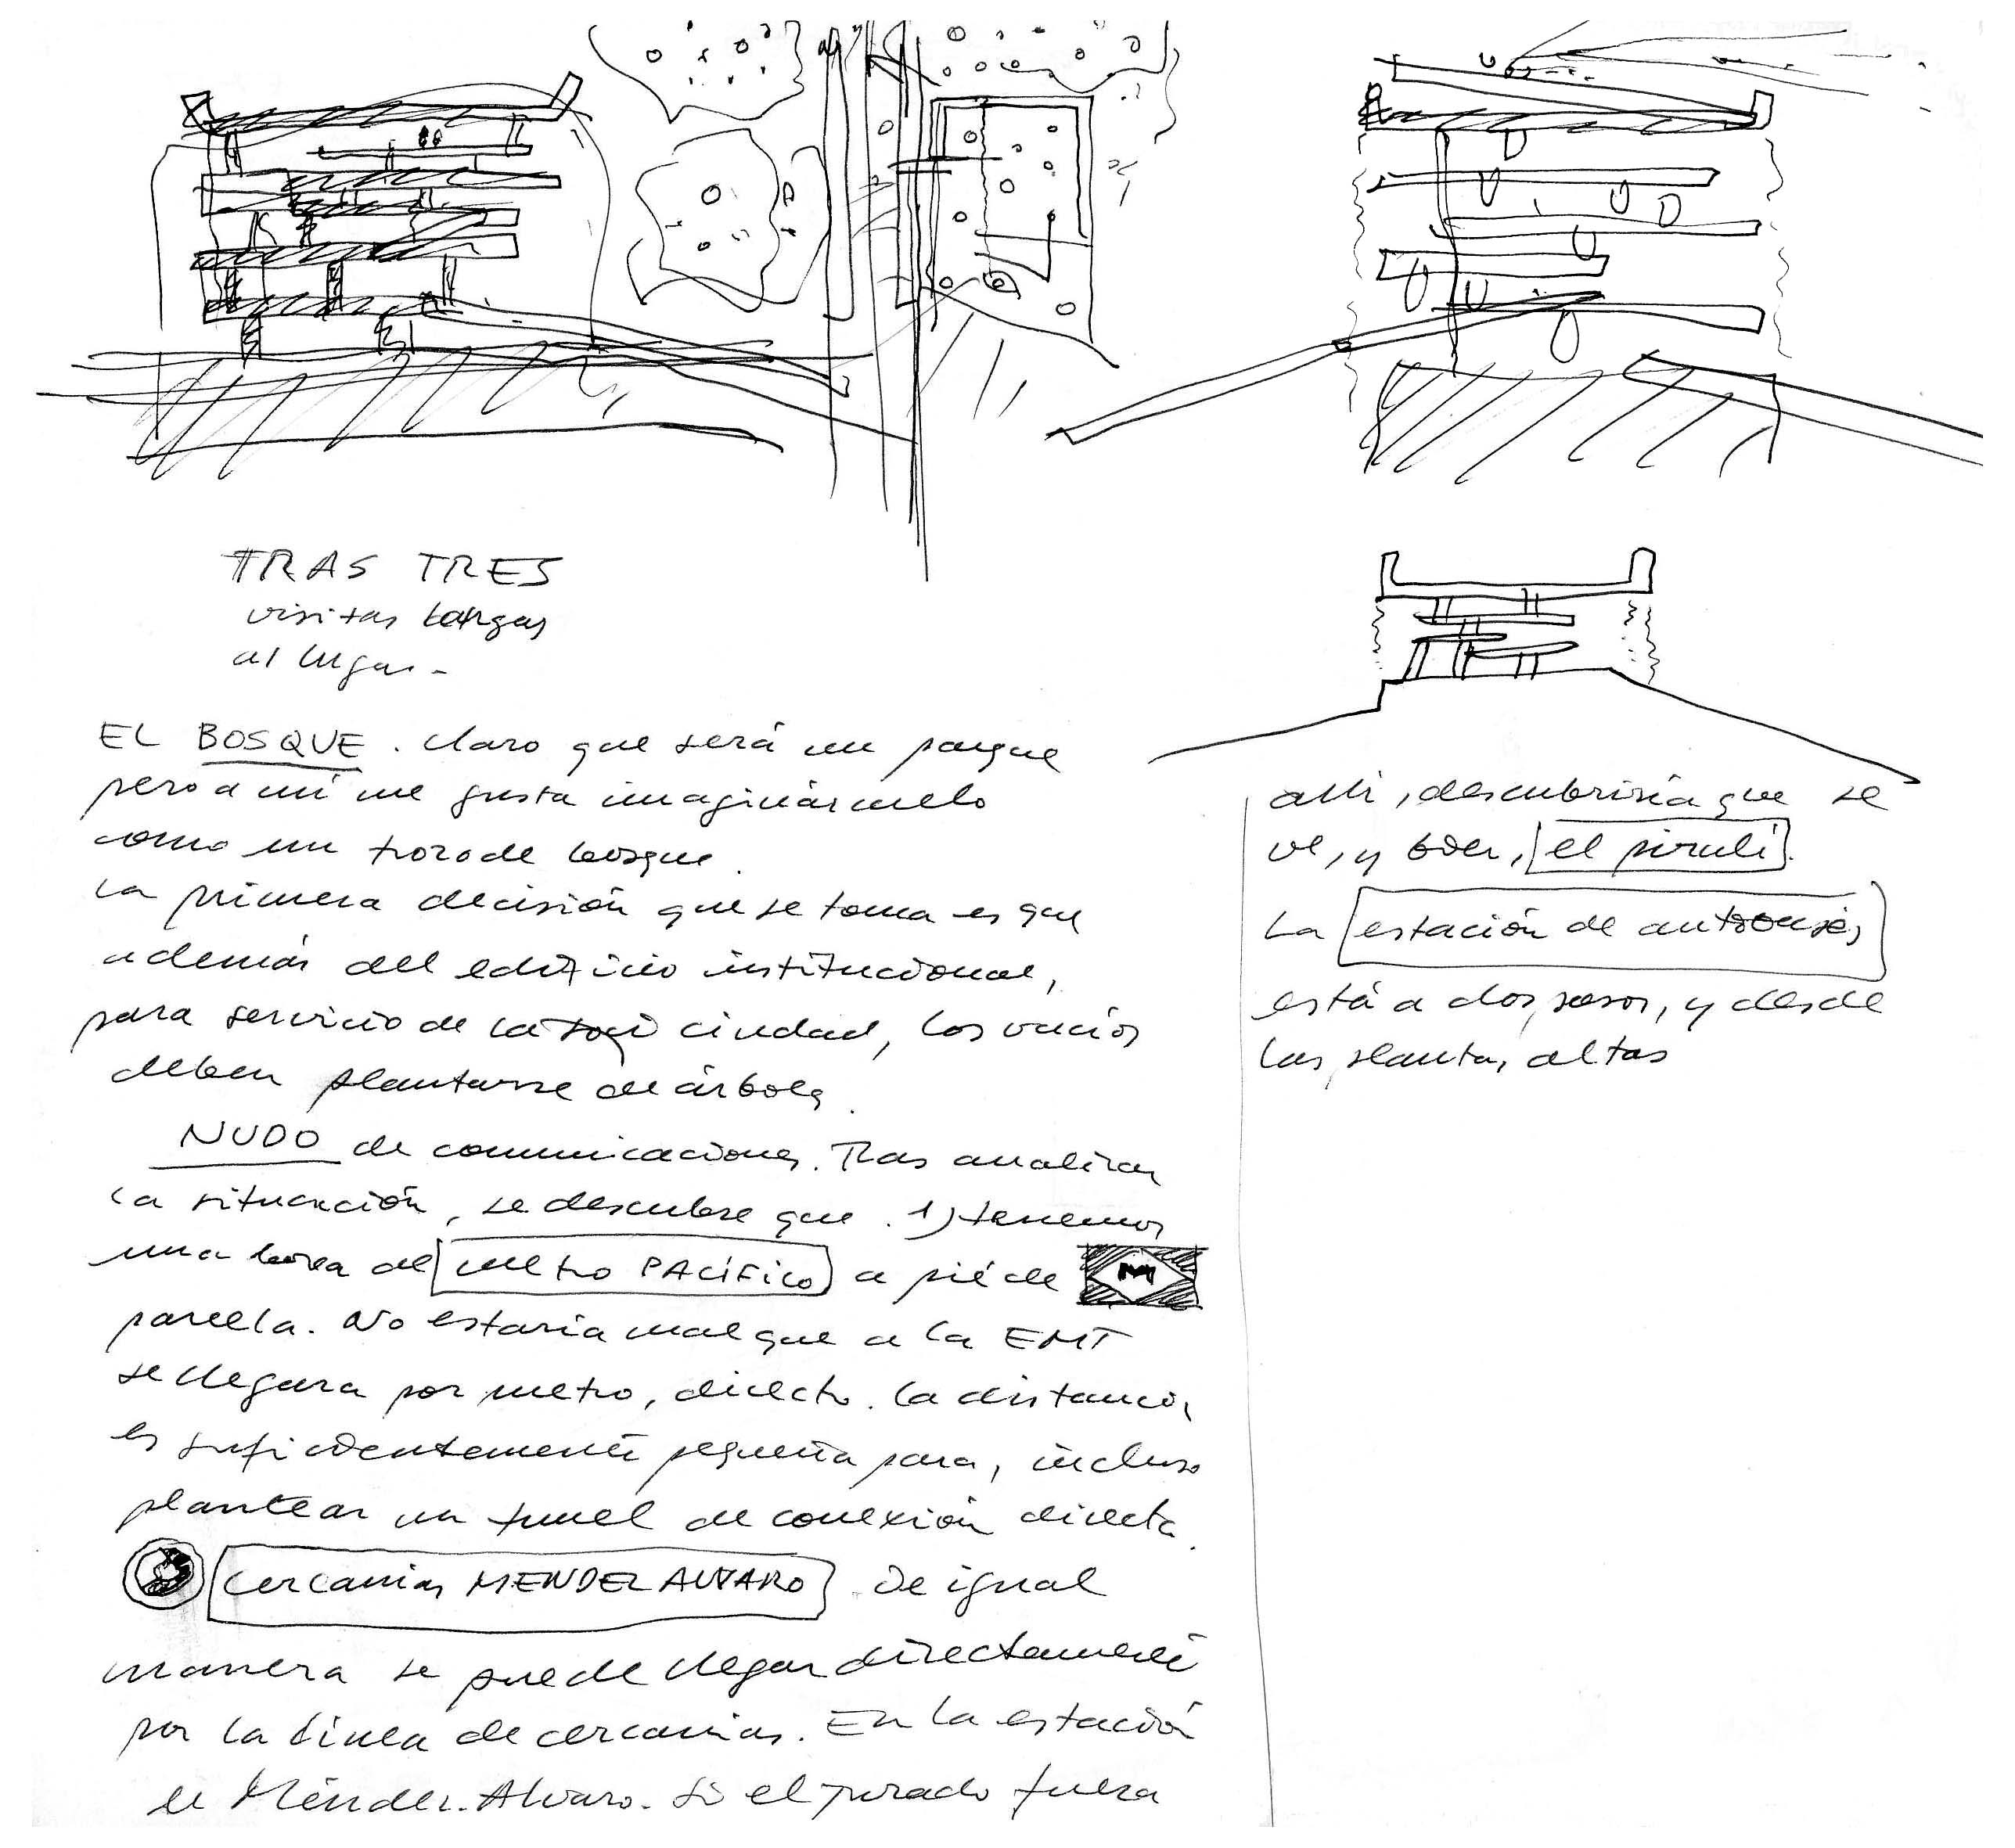 TRAS TRES
visitas largas
al lugar-
EL BOSQUE. Claro que será un parque
pero a mí me gusta imaginármelo
como un trozo de bosque.
La primera decisión que se toma es que
además del edificio institucional,
para servicio de la ciudad, los vacíos
deben plantarse de árboles.
NUDO de comunicaciones. Tras analizar
la situación, se descubre que. 1) tenemos
una boca de metro PACÍFICO a pié de
M
parcela. No estaria mal que a la EMT
se llegara por metro, directo. La distancia
es suficientemente pequeña para, incluso
plantear un tunel de conexión directa.
cercanias MENDEZ ALVARO. De igual
manera se puede llegar directamente
por la linea de cercanias. En la estación
de Méndez-Alvaro. Si el jurado fuera
alli, descubriria que se
ve, y bien, el pirulí.
La estación de autobuses
está a dos pasos, y desde
las plantas altas